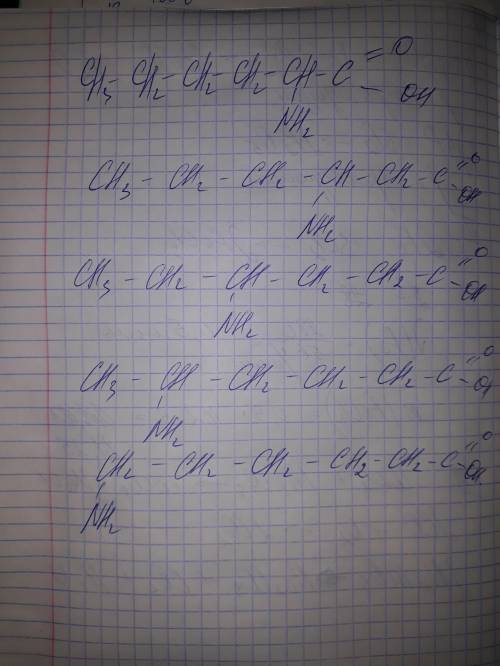 CH₃ - CH₂ - CH₂ - CH₂ - CH - C = O
OH
NH₂
CH₃ - CH₂ - CH₂ - CH - CH₂ - C = O
- OH
NH₂
CH₃ - CH₂ - CH - CH₂ - CH₂ - C = O
- OH
NH₂
CH₃ - CH - CH₂ - CH₂ - CH₂ - C = O
- OH
NH₂
CH₂ - CH₂ - CH₂ - CH₂ - CH₂ - C = O
- OH
NH₂